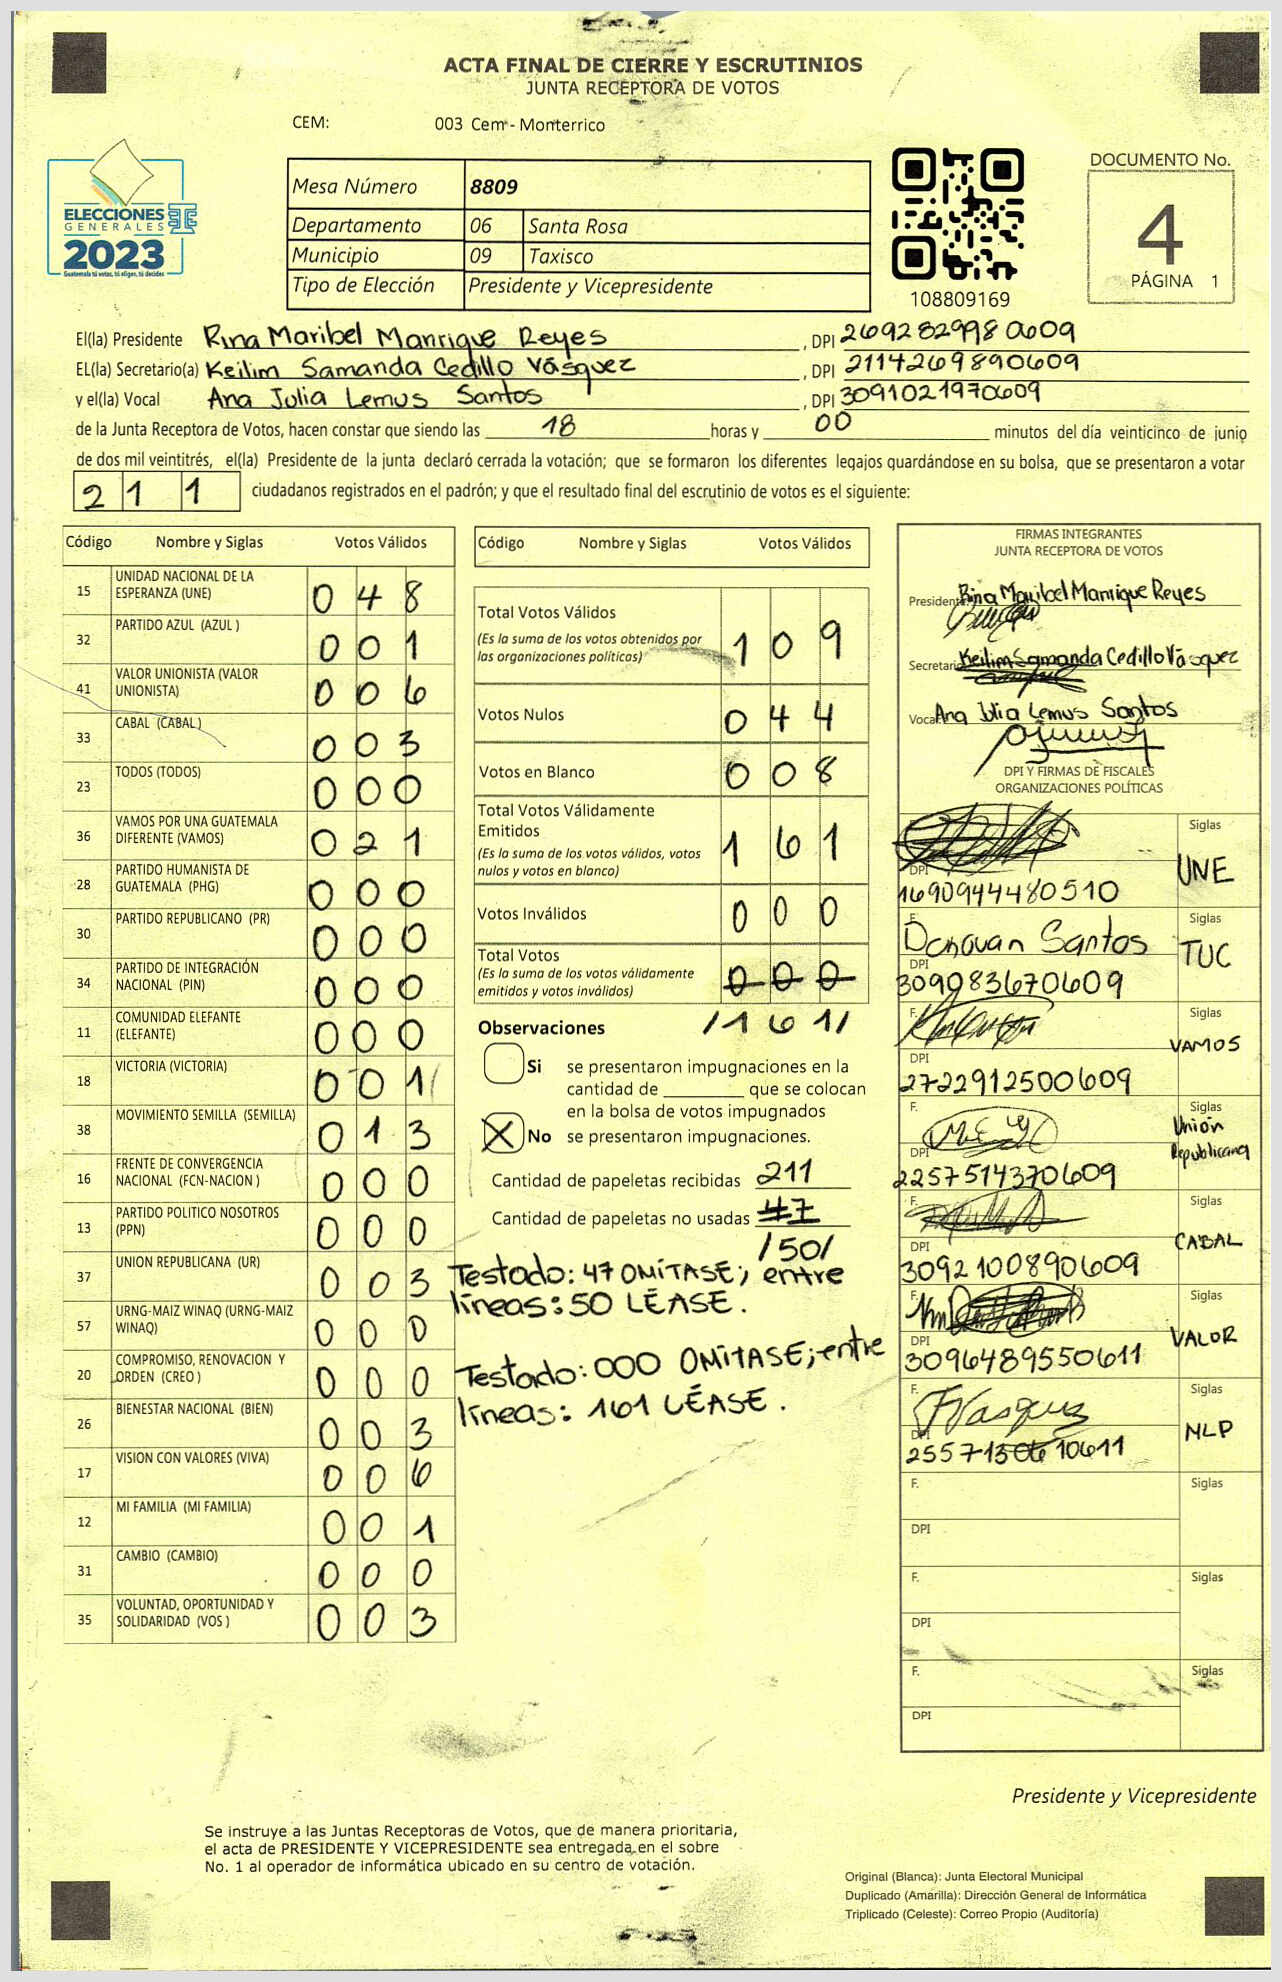 ACTA FINAL DE CIERRE Y ESCRUTINIOS
JUNTA RECEPTORA DE VOTOS
CEM: 003 Cem - Monterrico
ELECCIONES
GENERALES
2023
Guatemala tú votas, tú eliges, tú decides
Mesa Número 8809
Departamento 06 Santa Rosa
Municipio 09 Taxisco
Tipo de Elección Presidente y Vicepresidente
108809169
DOCUMENTO No.
4
PÁGINA 1
El(la) Presidente Rina Maribel Manrique Reyes , DPI 2692829980609
EL(la) Secretario(a) Keilim Samanda Cedillo Vásquez , DPI 2114269890609
y el(la) Vocal Ana Julia Lemus Santos , DPI 3091021970609
de la Junta Receptora de Votos, hacen constar que siendo las 18 horas y 00 minutos del día veinticinco de junio
de dos mil veintitrés, el(la) Presidente de la junta declaró cerrada la votación; que se formaron los diferentes legajos guardándose en su bolsa, que se presentaron a votar
211 ciudadanos registrados en el padrón; y que el resultado final del escrutinio de votos es el siguiente:
Código Nombre y Siglas Votos Válidos
15 UNIDAD NACIONAL DE LA ESPERANZA (UNE) 048
32 PARTIDO AZUL (AZUL ) 001
41 VALOR UNIONISTA (VALOR UNIONISTA) 006
33 CABAL (CABAL ) 003
23 TODOS (TODOS) 000
36 VAMOS POR UNA GUATEMALA DIFERENTE (VAMOS) 021
28 PARTIDO HUMANISTA DE GUATEMALA (PHG) 000
30 PARTIDO REPUBLICANO (PR) 000
34 PARTIDO DE INTEGRACIÓN NACIONAL (PIN) 000
11 COMUNIDAD ELEFANTE (ELEFANTE) 000
18 VICTORIA (VICTORIA) 001
38 MOVIMIENTO SEMILLA (SEMILLA) 013
16 FRENTE DE CONVERGENCIA NACIONAL (FCN-NACION ) 000
13 PARTIDO POLITICO NOSOTROS (PPN) 000
37 UNION REPUBLICANA (UR) 003
57 URNG-MAIZ WINAQ (URNG-MAIZ WINAQ) 000
20 COMPROMISO, RENOVACION Y ORDEN (CREO ) 000
26 BIENESTAR NACIONAL (BIEN) 003
17 VISION CON VALORES (VIVA) 006
12 MI FAMILIA (MI FAMILIA) 001
31 CAMBIO (CAMBIO) 000
35 VOLUNTAD, OPORTUNIDAD Y SOLIDARIDAD (VOS ) 003
Código Nombre y Siglas Votos Válidos
Total Votos Válidos 109
(Es la suma de los votos obtenidos por
las organizaciones políticas)
Votos Nulos 044
Votos en Blanco 008
Total Votos Válidamente
Emitidos 161
(Es la suma de los votos válidos, votos
nulos y votos en blanco)
Votos Inválidos 000
Total Votos 000
(Es la suma de los votos válidamente
emitidos y votos inválidos)
/161/
Observaciones
Si se presentaron impugnaciones en la
cantidad de ________ que se colocan
en la bolsa de votos impugnados
X No se presentaron impugnaciones.
Cantidad de papeletas recibidas 211
Cantidad de papeletas no usadas 47
/50/
Testado: 47 OMÍTASE; entre
líneas: 50 LÉASE.
Testado: 000 OMITASE; entre
líneas: 161 LÉASE.
FIRMAS INTEGRANTES
JUNTA RECEPTORA DE VOTOS
Presidente Rina Maribel Manrique Reyes
Secretari Keilim Samanda Cedillo Vásquez
Vocal Ana Julia Lemus Santos
DPI Y FIRMAS DE FISCALES
ORGANIZACIONES POLÍTICAS
Siglas
UNE
DPI
1690944480510
F. Donovan Santos
Siglas
TUC
DPI
309083670609
F.
Siglas
VAMOS
DPI
2722912500609
F.
Siglas
Unión
Republicana
DPI
2257514370609
F.
Siglas
CABAL
DPI
3092100890609
F.
Siglas
VALOR
DPI
3096489550611
F. FVasquez
Siglas
MLP
DPI
F.
Siglas
DPI
F.
Siglas
DPI
F.
Siglas
DPI
Presidente y Vicepresidente
Se instruye a las Juntas Receptoras de Votos, que de manera prioritaria,
el acta de PRESIDENTE Y VICEPRESIDENTE sea entregada en el sobre
No. 1 al operador de informática ubicado en su centro de votación.
Original (Blanca): Junta Electoral Municipal
Duplicado (Amarilla): Dirección General de Informática
Triplicado (Celeste): Correo Propio (Auditoría)